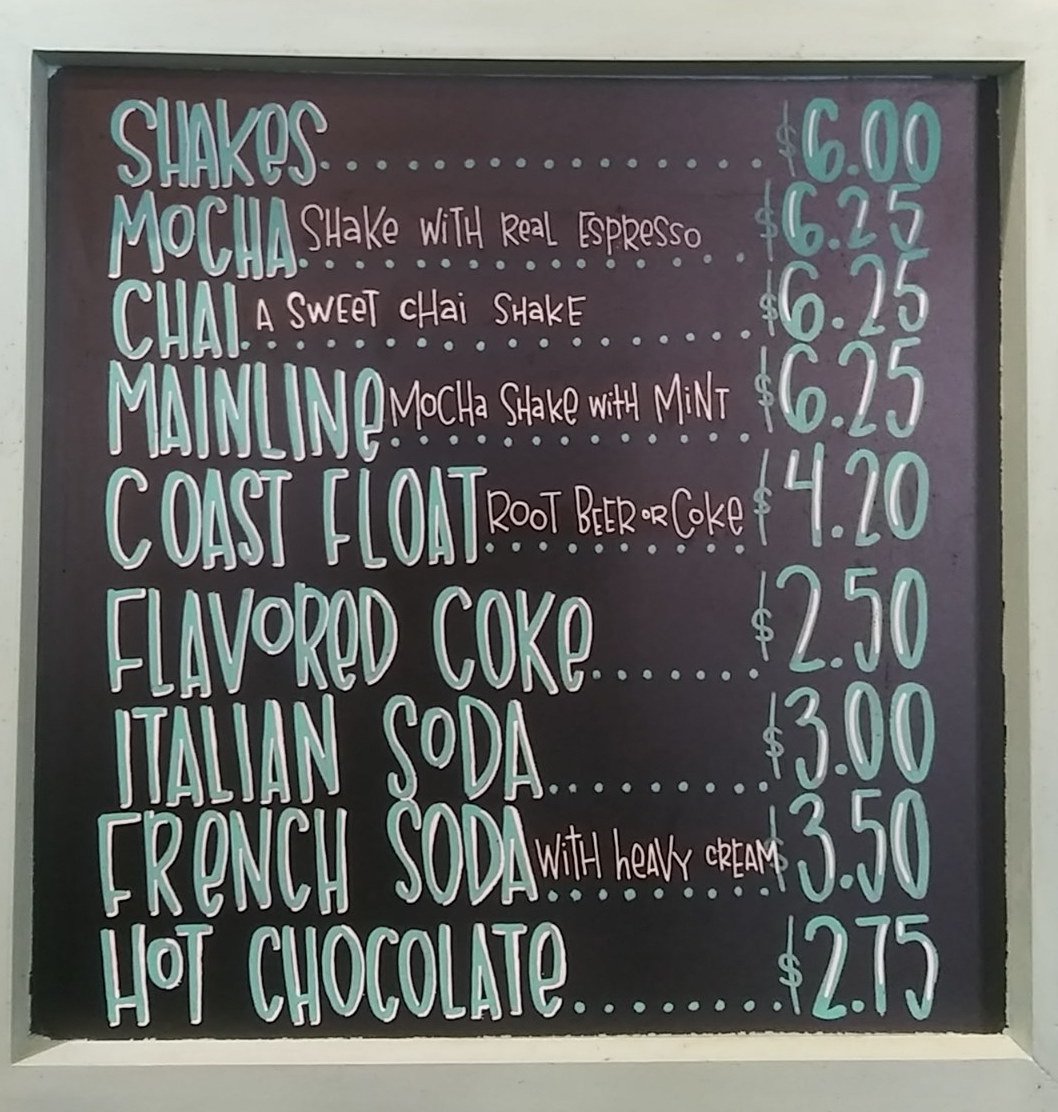 SHAKES.................$6.00
MOCHA SHAKE WITH REAL ESPRESSO $6.25
CHAI A SWEET CHAI SHAKE $6.25
MAINLINE MOCHA SHAKE WITH MINT $6.25
COAST FLOAT ROOT BEER OR COKE $4.20
FLAVORED COKE.......$2.50
ITALIAN SODA.........$3.00
FRENCH SODA WITH HEAVY CREAM $3.50
HOT CHOCOLATE........$2.75